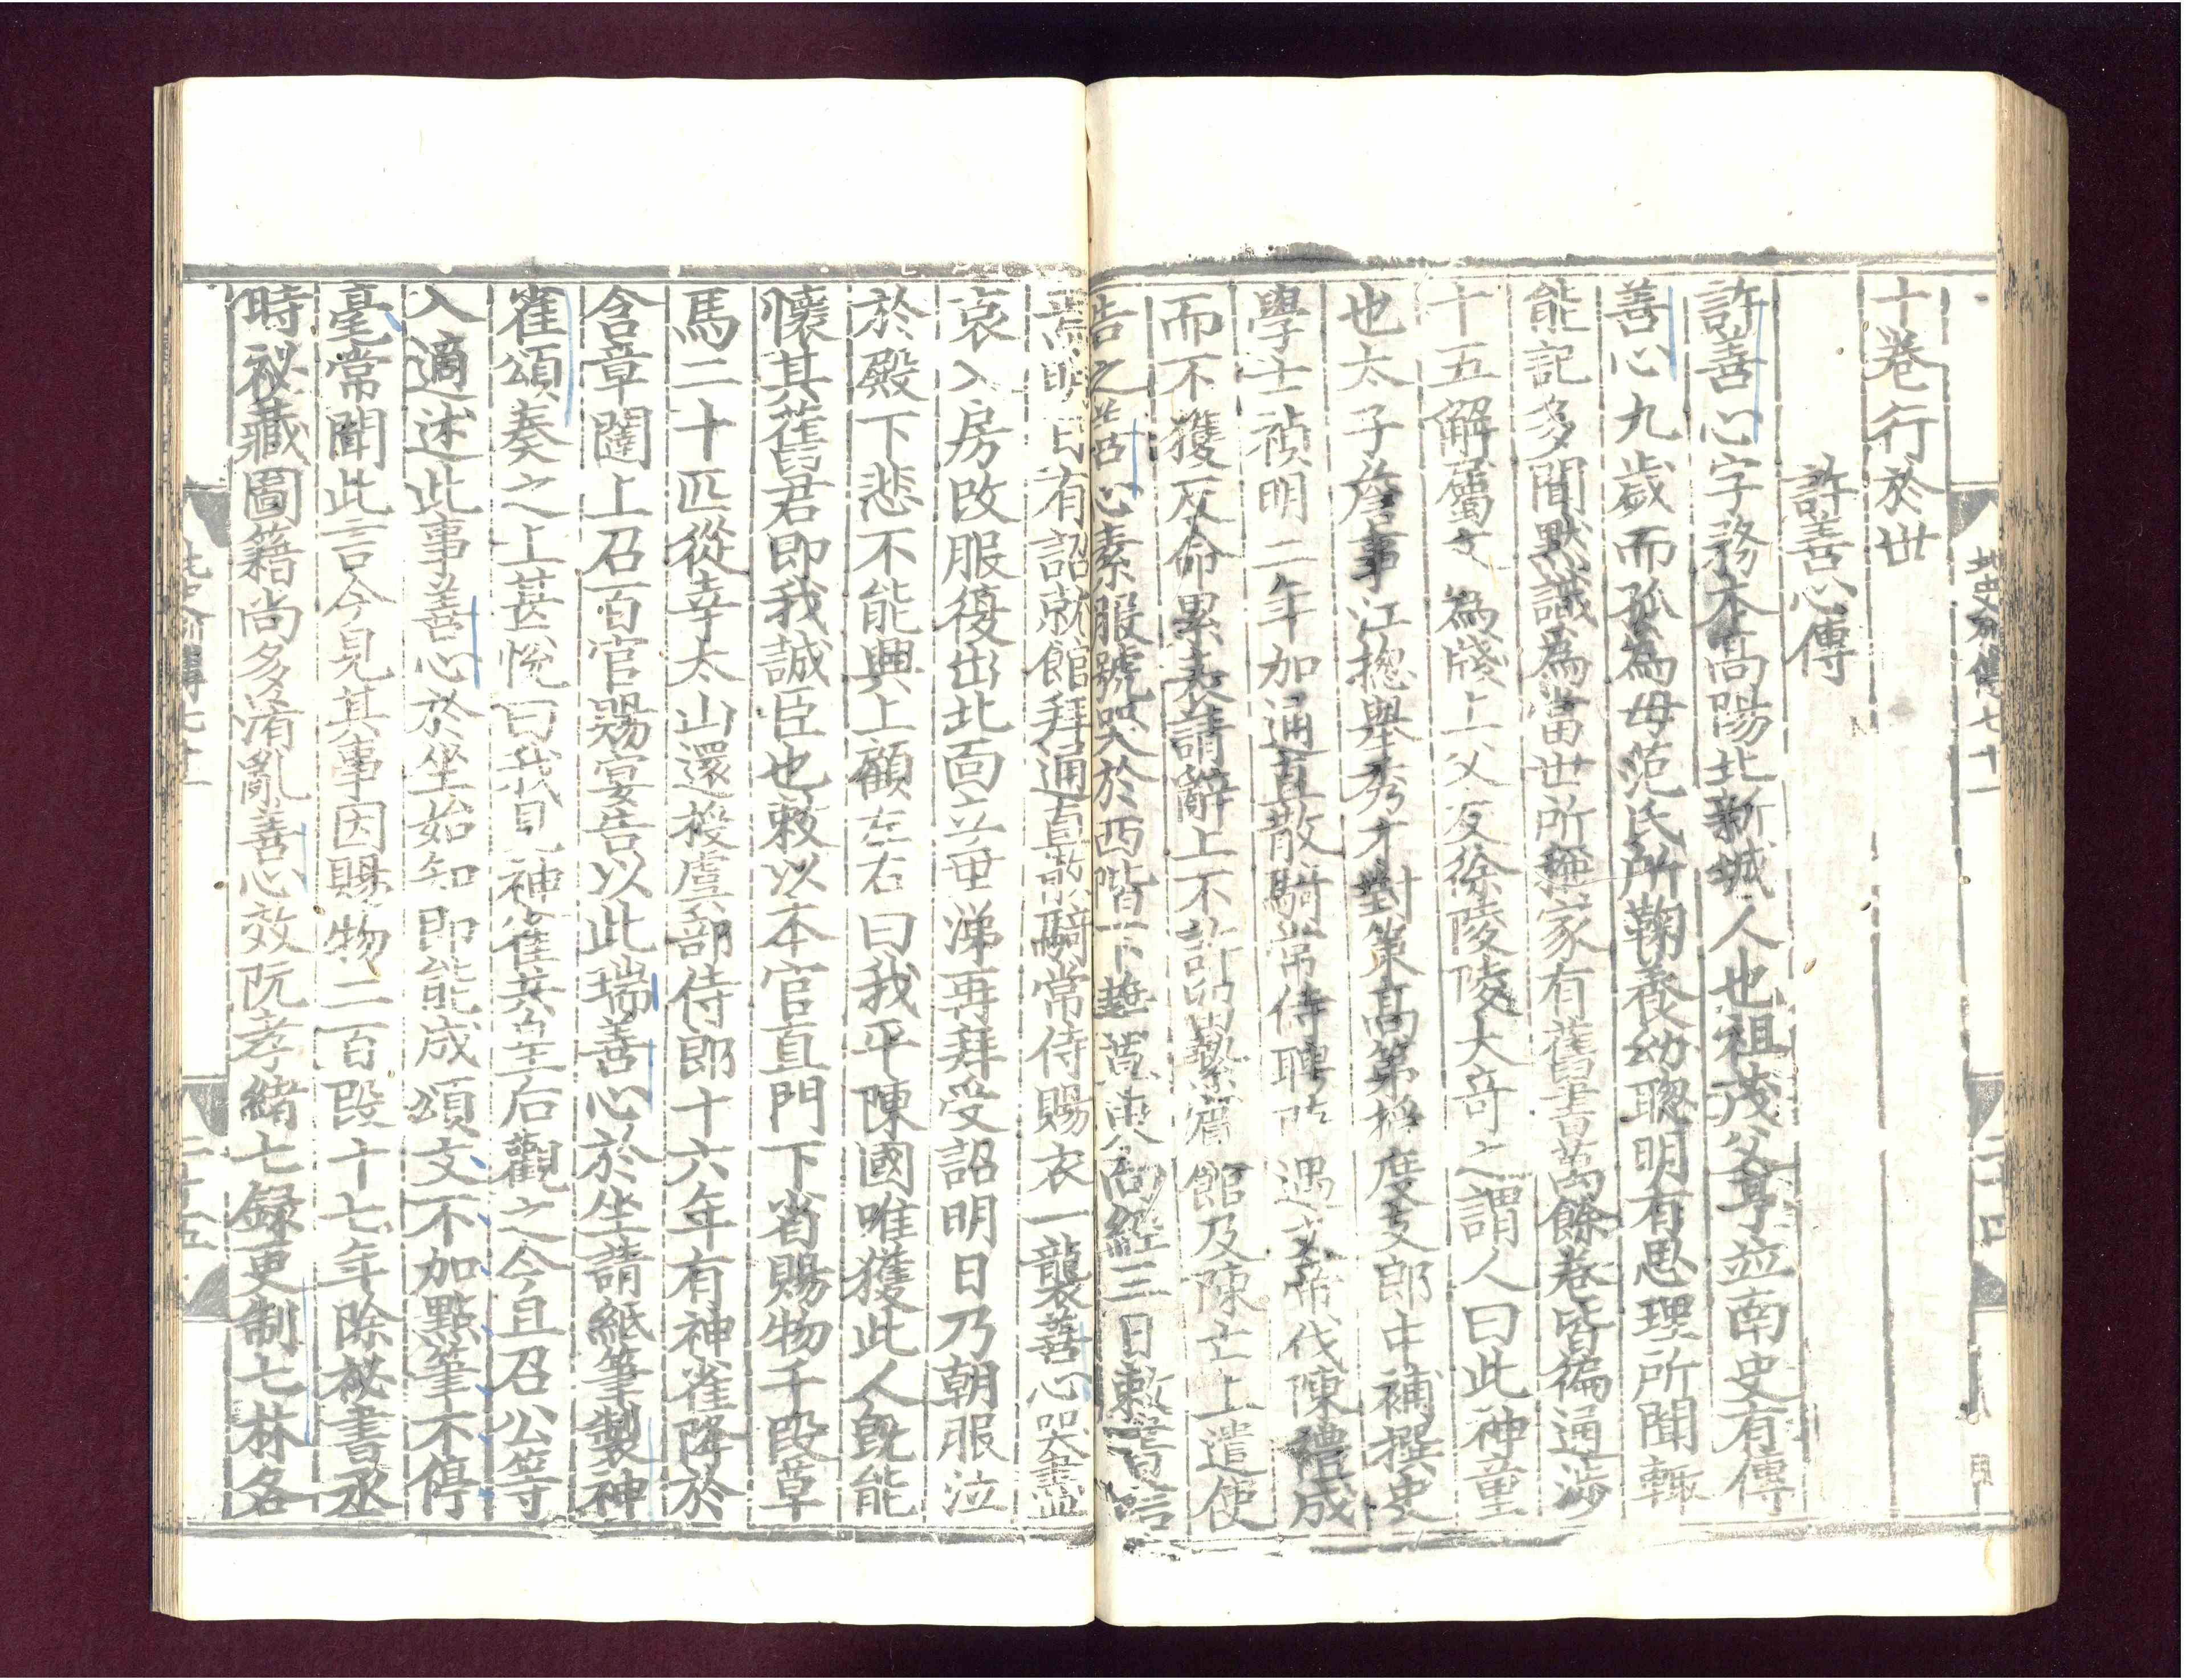 北史列傳七十一
二十四
十卷行於世
許善心傳
許善心字務本高陽北新城人也祖茂父亨並南史有傳
善心九歲而孤為母范氏所鞠養幼聰明有思理所聞輒
能記多聞默識為當世所稱家有舊書萬餘卷皆徧通涉
十五解屬文為牋上父友徐陵陵大奇之謂人曰此神童
也太子詹事江揔舉秀才對策高第授度支郎中補撰史
學士禎明二年加通直散騎常侍聘隋遇文帝伐陳禮成
而不獲反命累表請辭上不許留縶賓館及陳亡上遣使
告之善心素服號哭於西階下藉草東向經三日敕書唁
焉明日有詔就館拜通直散騎常侍賜衣一襲善心哭盡
哀入房改服復出北面立垂涕再拜受詔明日乃朝服泣
於殿下悲不能興上顧左右曰我平陳國唯獲此人旣能
懷其舊君即我誠臣也敕以本官直門下省賜物千段草
馬二十匹從幸太山還授虞部侍郎十六年有神雀降於
含章闥上召百官賜宴告以此瑞善心於坐請紙筆製神
雀頌奏之上甚悅曰我見神雀共皇后觀之今且召公等
入適述此事善心於坐始知即能成頌文不加點筆不停
毫常聞此言今見其事因賜物二百段十七年除祕書丞
時祕藏圖籍尚多淆亂善心效阮孝緒七録更制七林各
北史列傳七十一
二十五